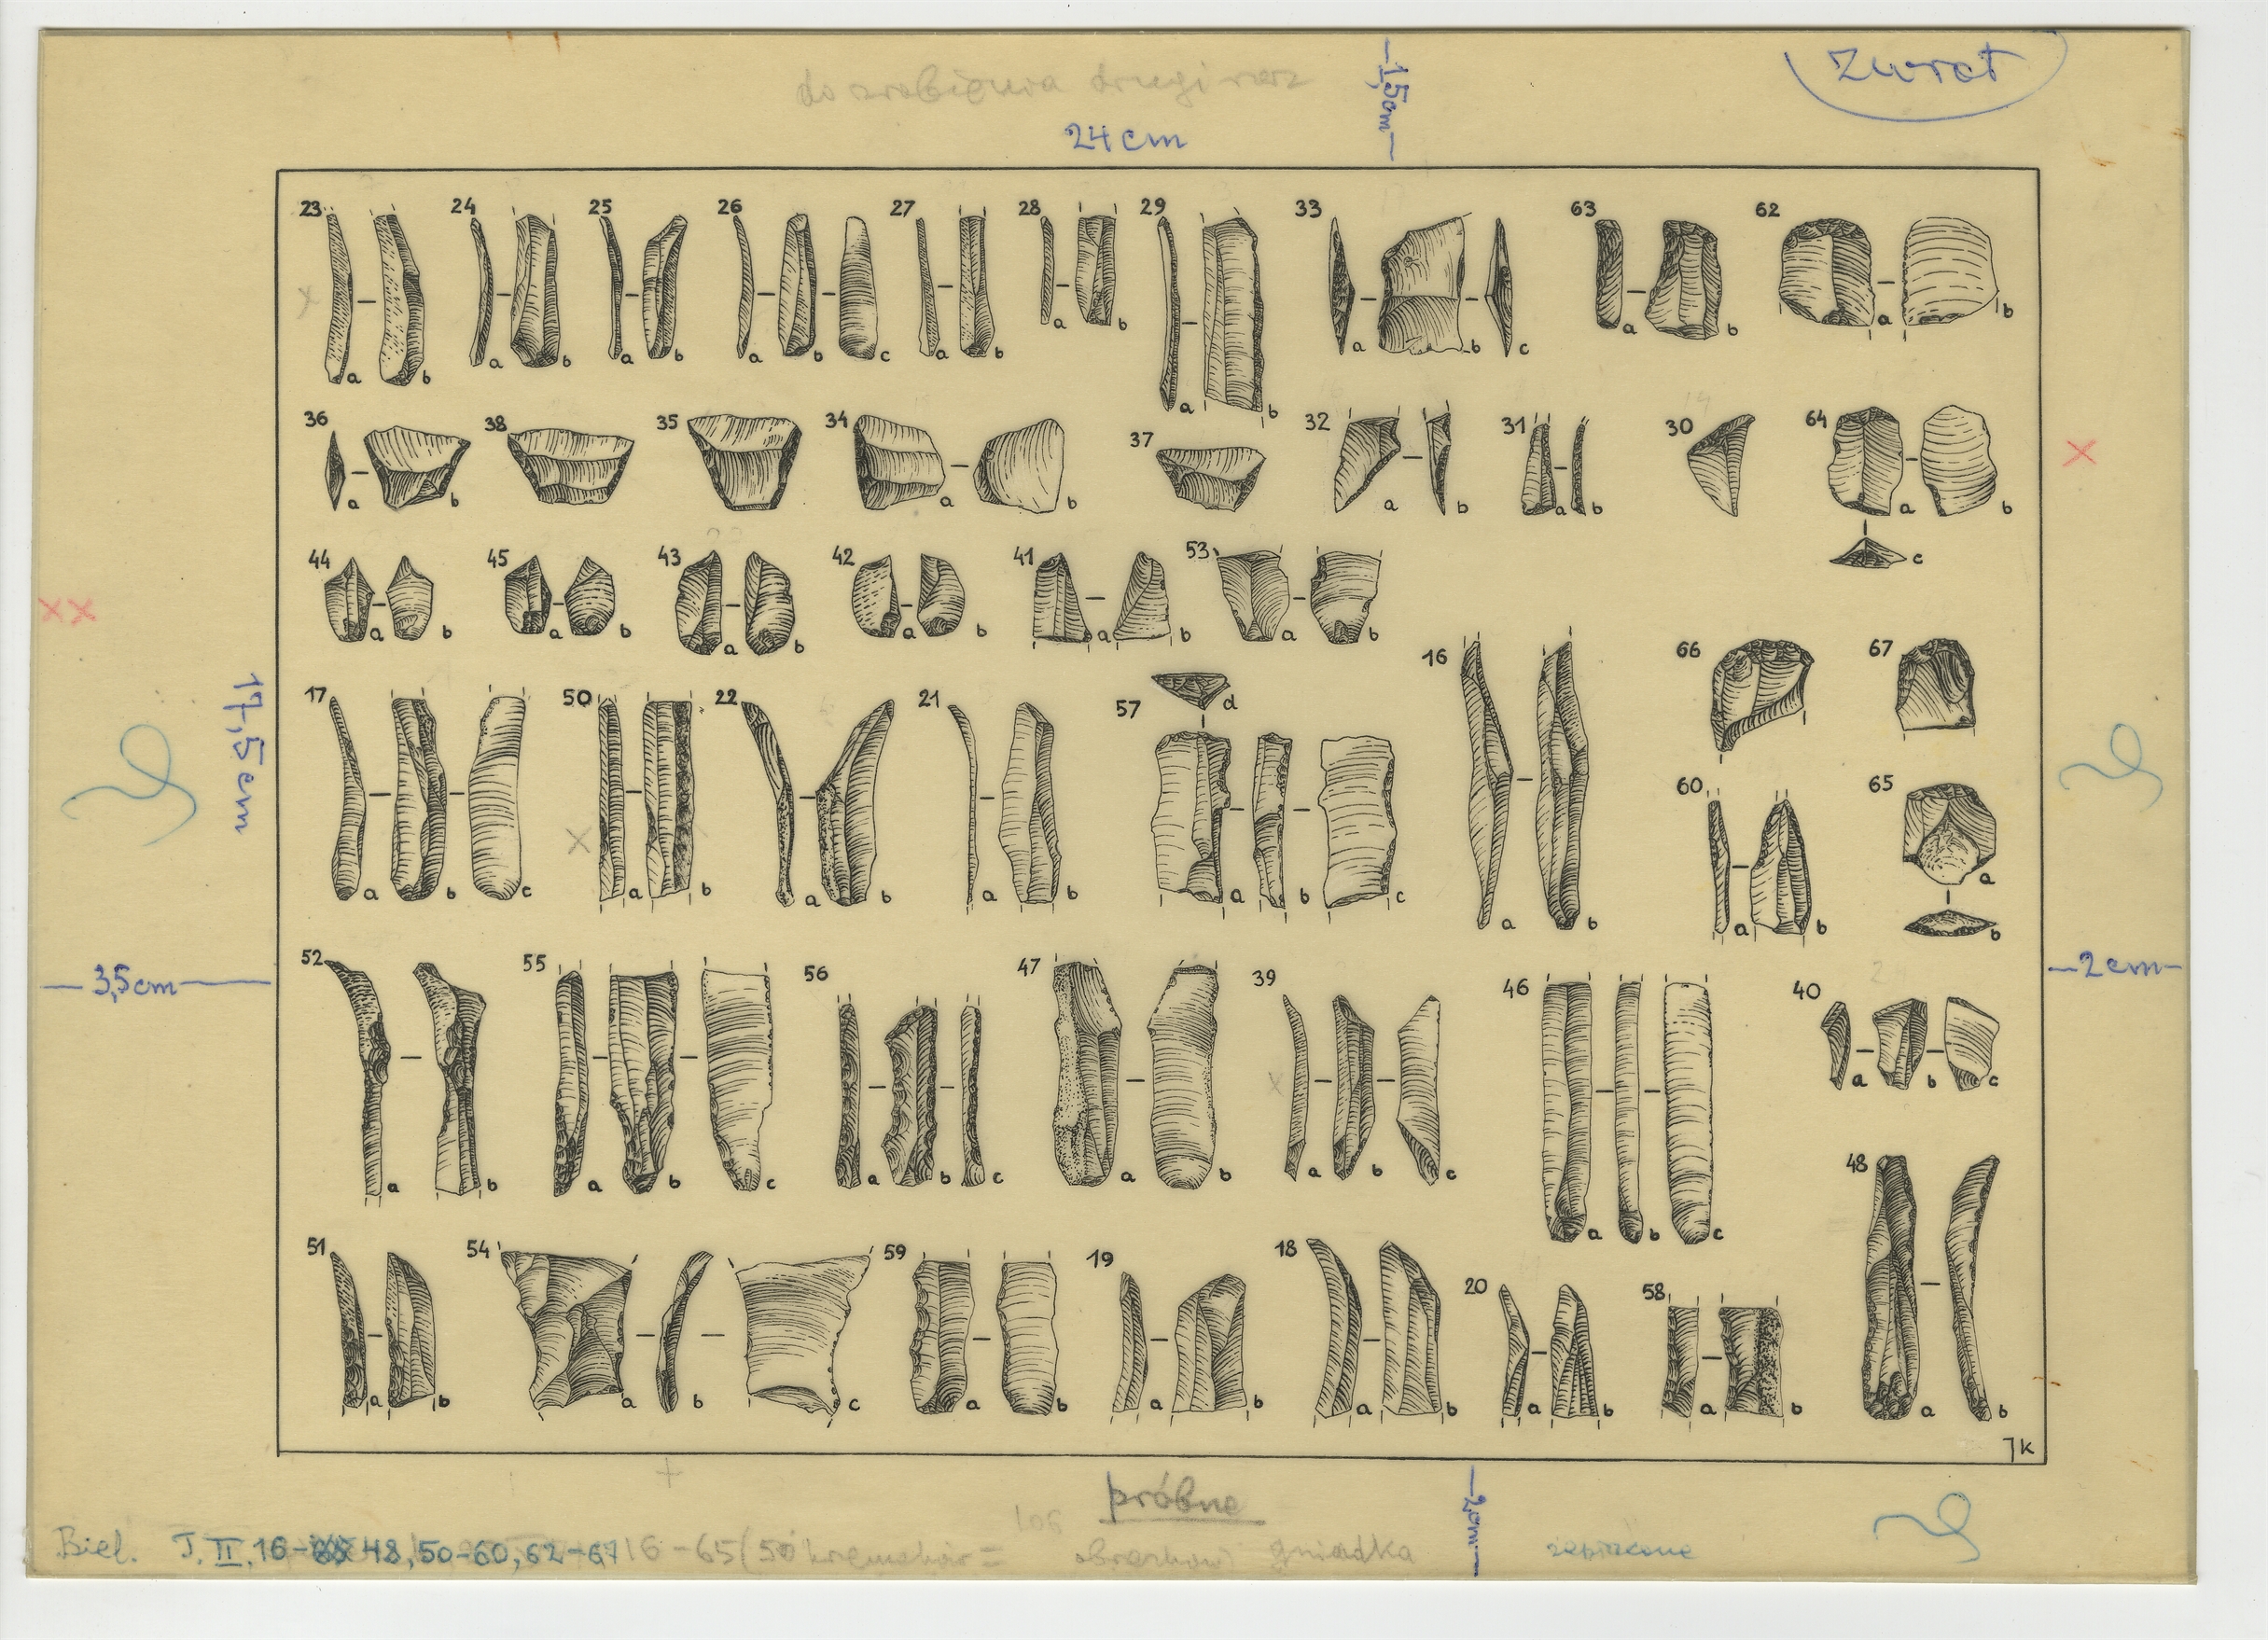 do zrobienia drugi raz
Zwrot
1,5cm
24 cm
23 24 25 26 27 28 29 33 63 62
a b a b a b a b c a b a b a b a b c a b a b
36 38 35 34 37 32 31 30 64
a b a b a b a b a b c
44 45 43 42 41 53
a b a b a b a b a b a b
16 66 67
17 50 22 21 57 d
60 65
a b c a b a b a b a b c a b a b a b
17,5cm
3,5cm
2cm
52 55 56 47 39 46 40
a b a b c a b c a b a b c a b c a b c
48
51 54 59 19 18 20 58
a b a b c a b a b a b a b a b a b
JK
próbne
2cm
Biel. T. II. 16- 48, 50-60, 62-67 16-65 (50